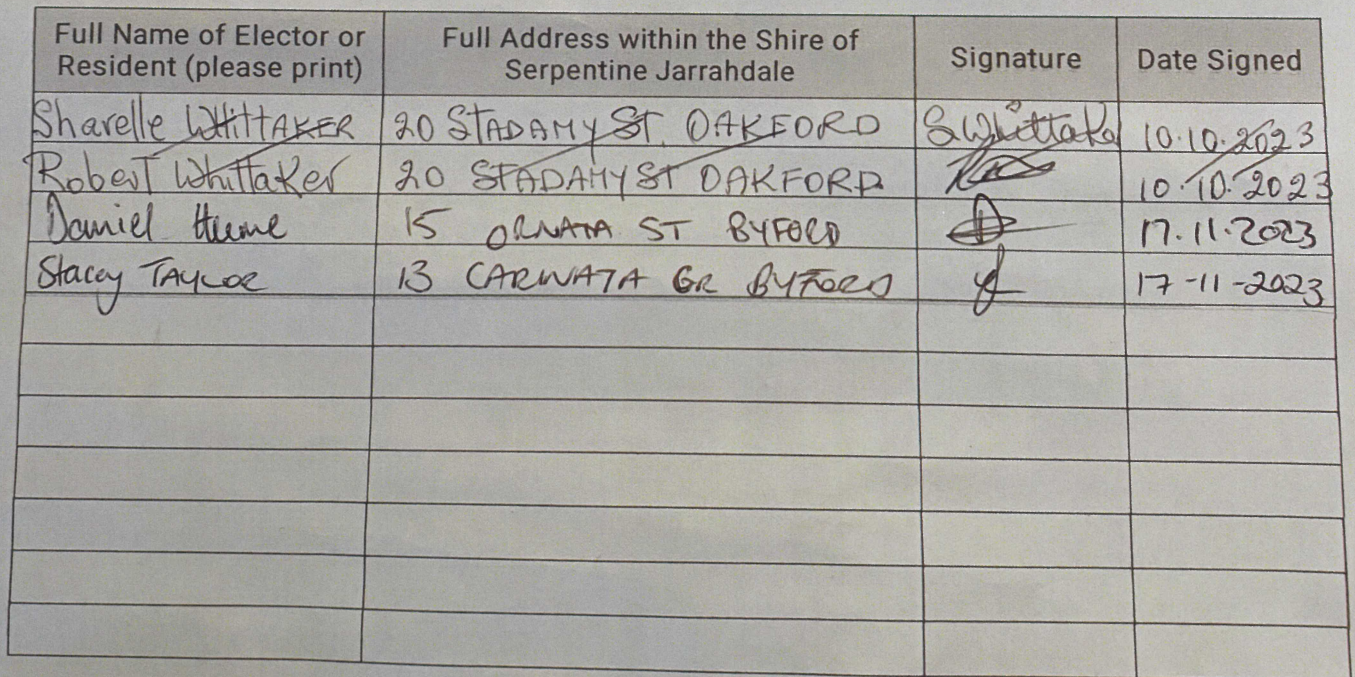 Full Name of Elector or Resident (please print) Full Address within the Shire of Serpentine Jarrahdale Signature Date Signed
Sharelle WHITTAKER 20 STADAMY ST. OAKFORD S Whittaker 10.10.2023
Robert Whittaker 20 STADAMY ST OAKFORD 10.10.2023
Daniel Hume 15 ORNATA ST BYFORD 17.11.2023
Stacey TAYLOR 13 CARNATA GR BYFORD 17-11-2023